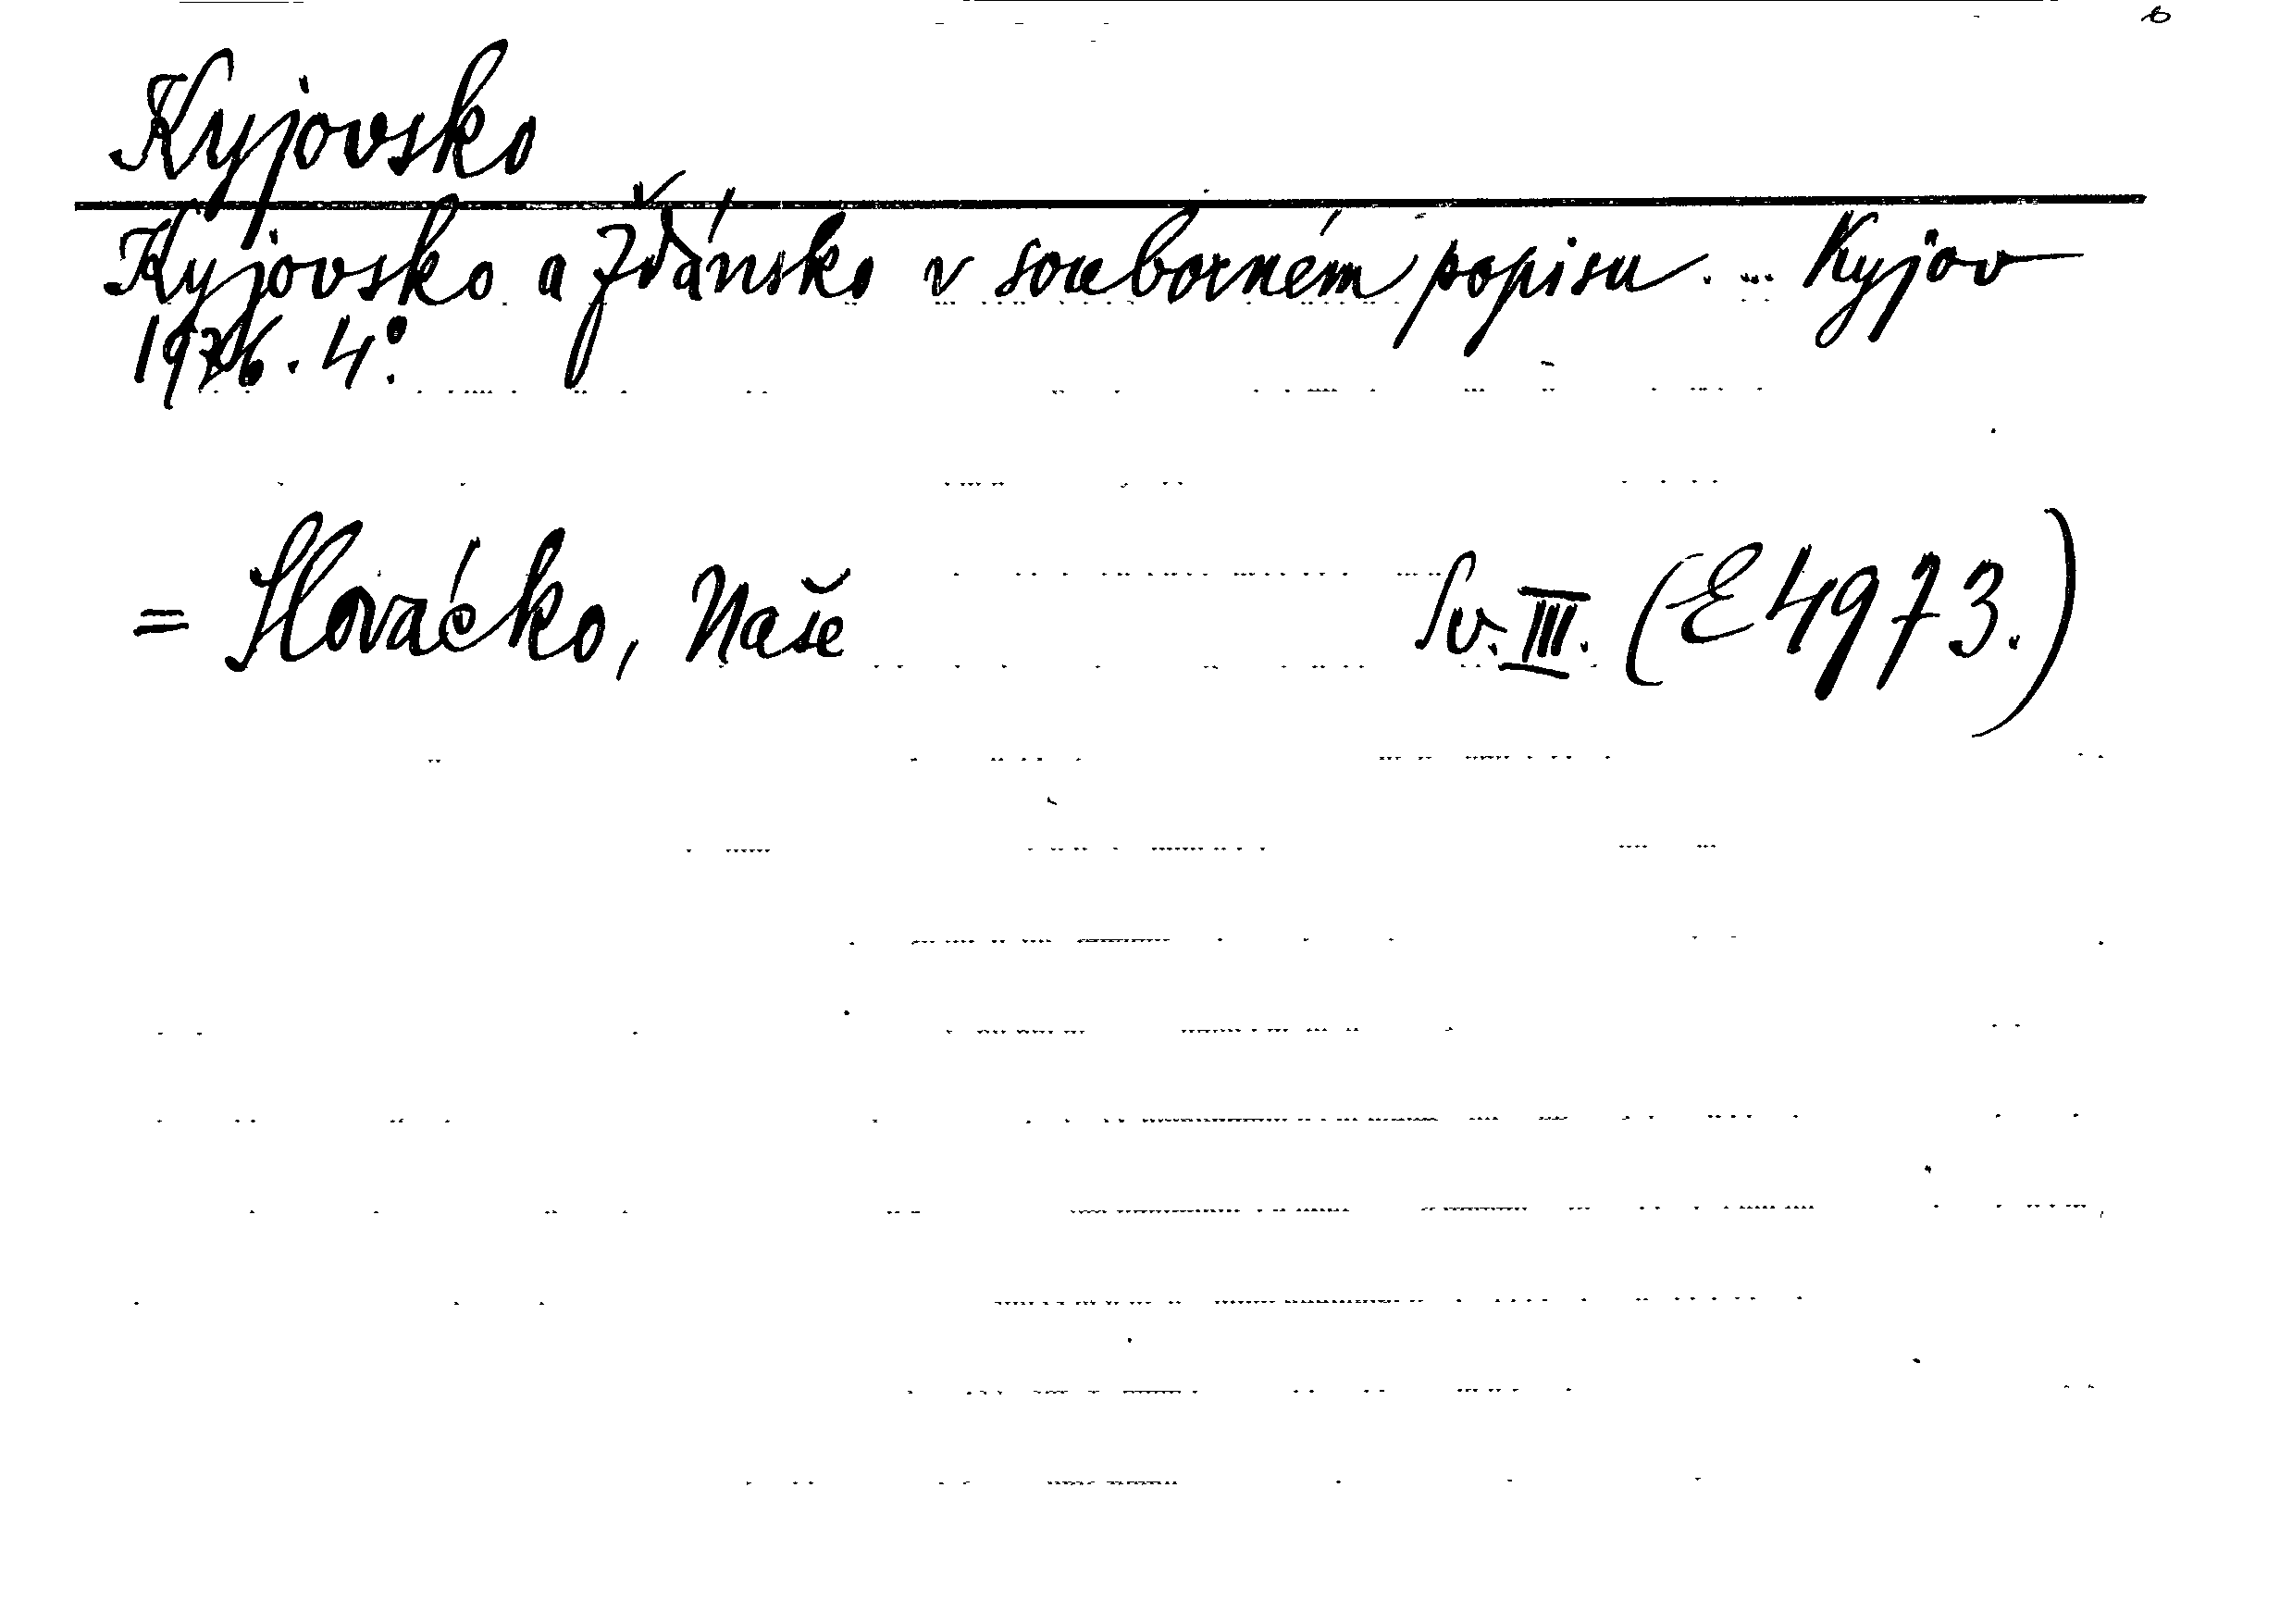 Kyjovsko
Kyjovsko a Ždánsko v souborném popisu. ... Kyjov
4°.
= Slovácko, Naše Sv. III. (E 4973.)